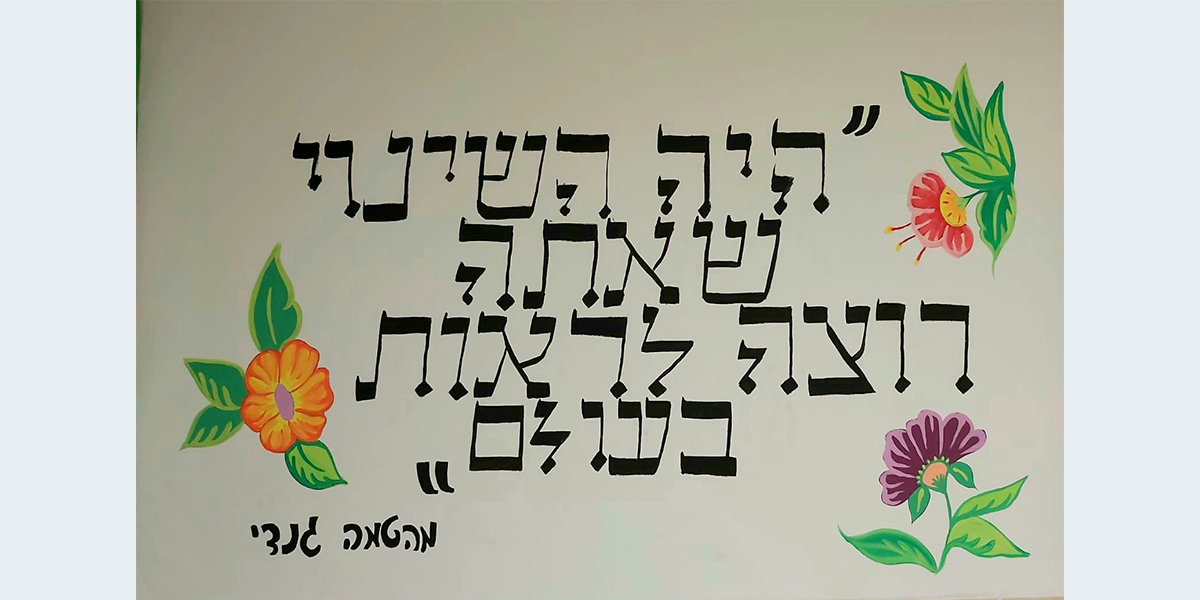 "היה השינוי
שאתה
רוצה לראות
בעולם"
מהטמה גנדי